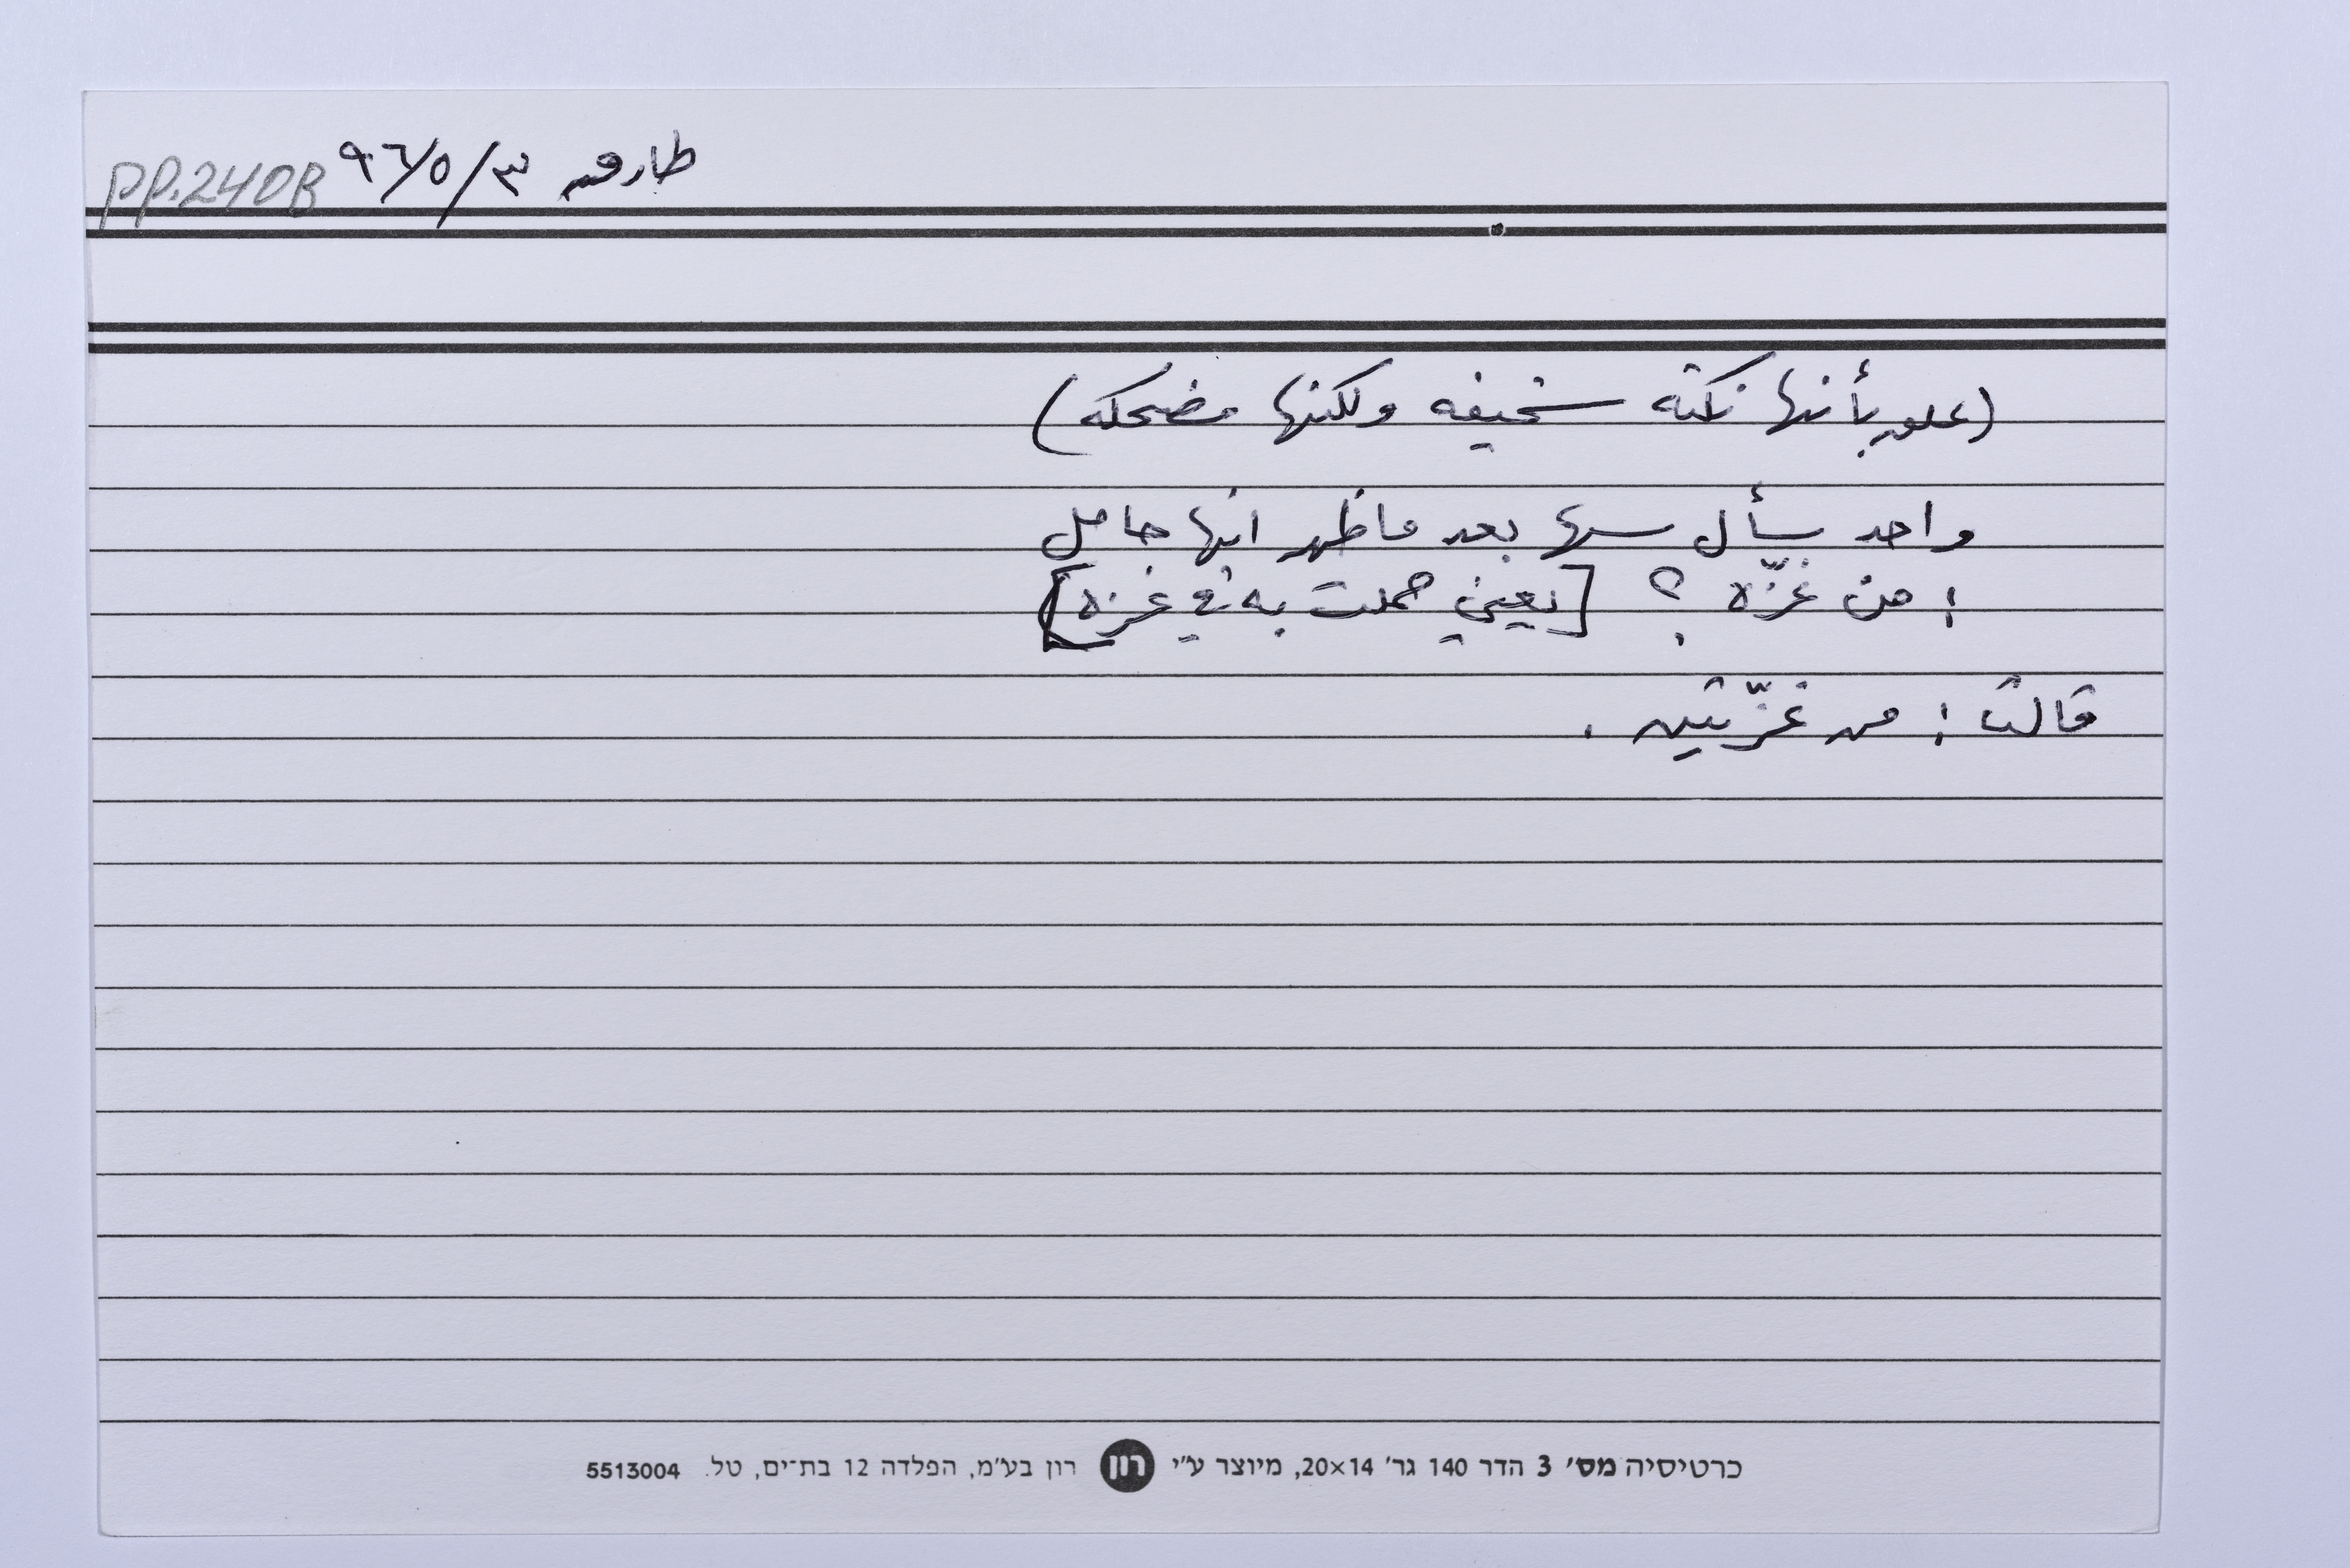 طارق ٩٦/٥/٣ pp.240B
(علق بأنها نكتة سخيفه ولكنها مضحكه)
واحد سأل سها بعد ما ظهر انها حامل
: من غزّه ؟ [يعني حملت به في غزه]
قالت : من غزّتين .
כרטיסיה מס׳ 3 הדר 140 גר׳ 20×14, מיוצר ע״י רון רון בע״מ, הפלדה 12 בת־ים, טל. 5513004